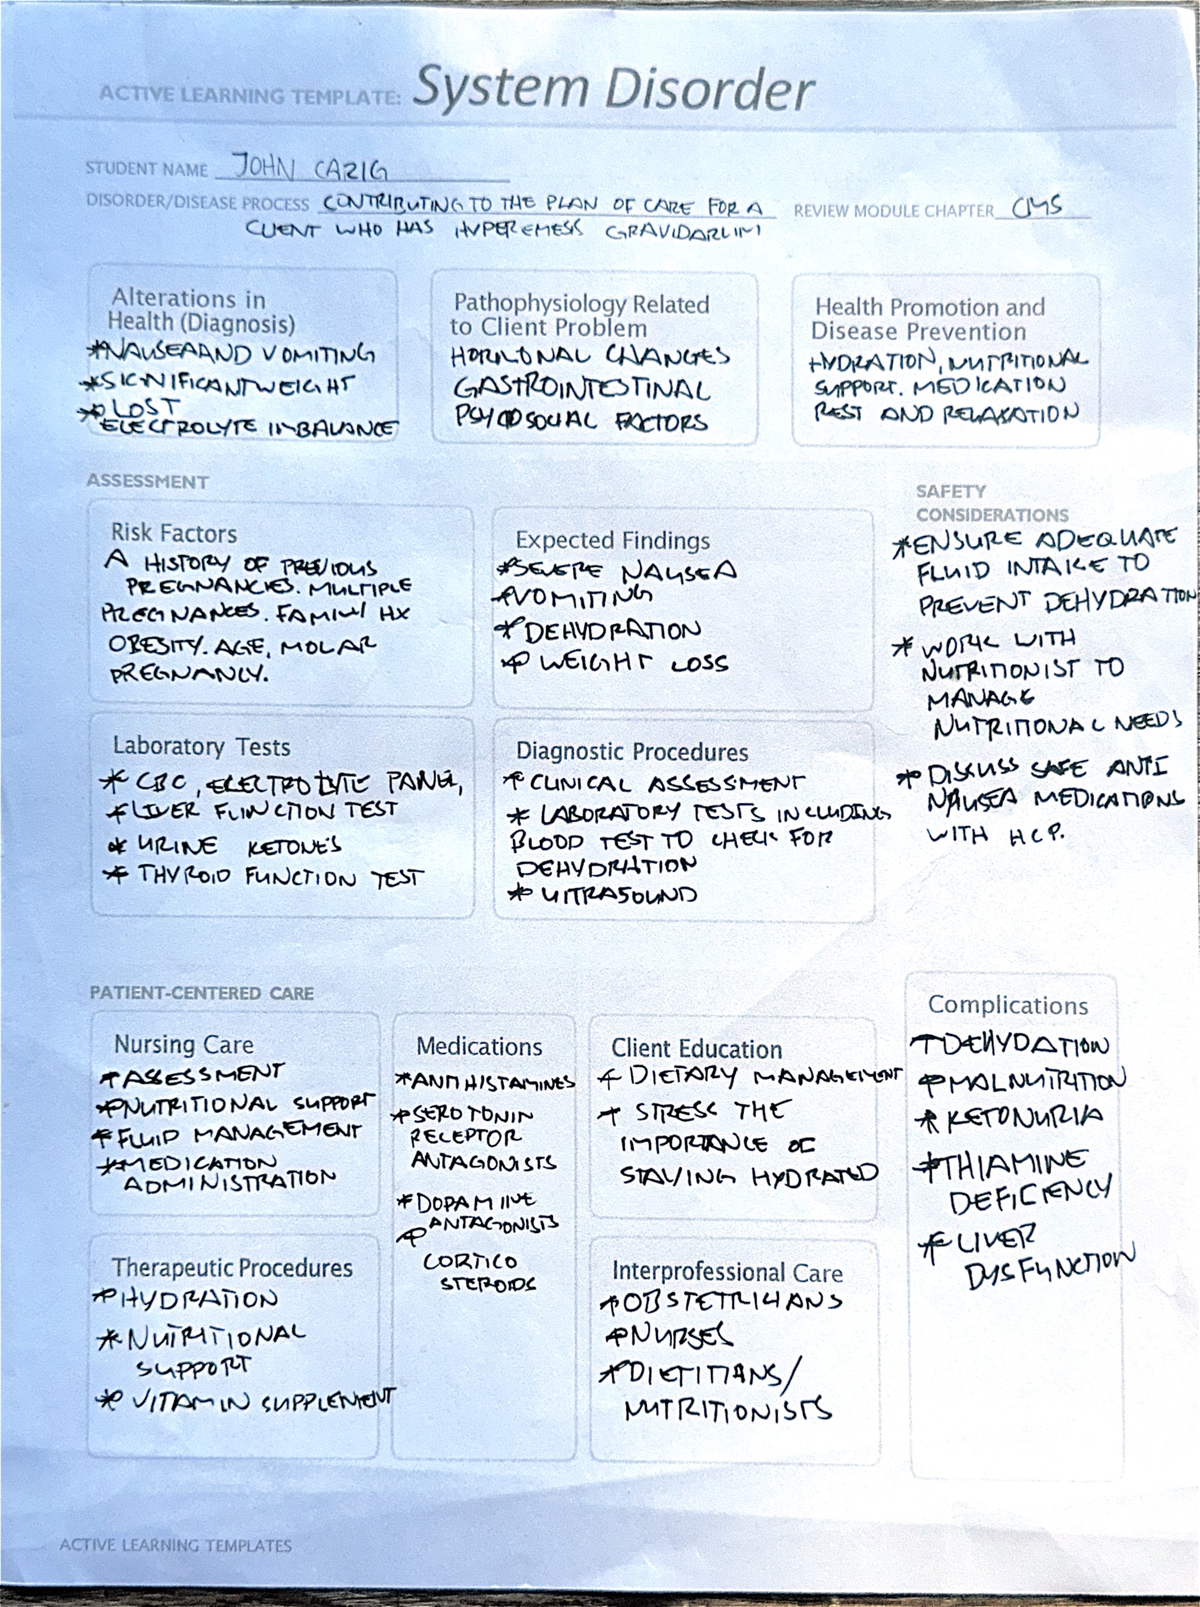 ACTIVE LEARNING TEMPLATE: System Disorder
STUDENT NAME JOHN CARIG
DISORDER/DISEASE PROCESS CONTRIBUTING TO THE PLAN OF CARE FOR A
CLIENT WHO HAS HYPEREMESS GRAVIDARUM
REVIEW MODULE CHAPTER CMS
Alterations in
Health (Diagnosis)
*NAUSEA AND VOMITING
*SIGNIFICANT WEIGHT
* LOST
ELECTROLYTE IMBALANCE
Pathophysiology Related
to Client Problem
HORMONAL CHANGES
GASTROINTESTINAL
PSYCOSOCIAL FACTORS
Health Promotion and
Disease Prevention
HYDRATION, NUTRITIONAL
SUPPORT. MEDICATION
REST AND RELAXATION
ASSESSMENT
Risk Factors
A HISTORY OF PREVIOUS
PREGNANCIES. MULTIPLE
PREGNANCES. FAMILY HX
OBESITY. AGE, MOLAR
PREGNANCY.
Expected Findings
*SEVERE NAUSEA
*VOMITING
*DEHYDRATION
* WEIGHT LOSS
SAFETY
CONSIDERATIONS
*ENSURE ADEQUATE
FLUID INTAKE TO
PREVENT DEHYDRATION
* WORK WITH
NUTRITIONIST TO
MANAGE
NUTRITIONAL NEEDS
* DISKUSS SAFE ANTI
NAUSEA MEDICATIONS
WITH HCP.
Laboratory Tests
* CBC, ELECTROLYTE PANEL,
*LIVER FUNCTION TEST
* URINE KETONES
* THYROID FUNCTION TEST
Diagnostic Procedures
* CLINICAL ASSESSMENT
* LABORATORY TESTS INCLUDING
BLOOD TEST TO CHECK FOR
DEHYDRATION
* ULTRASOUND
PATIENT-CENTERED CARE
Nursing Care
*ASSESSMENT
*NUTRITIONAL SUPPORT
*FLUID MANAGEMENT
*MEDICATION
ADMINISTRATION
Medications
*ANTIHISTAMINES
*SEROTONIN
RECEPTOR
ANTAGONISTS
*DOPAMINE
ANTAGONISTS
*
CORTICO
STEROIDS
Client Education
* DIETARY MANAGEMENT
* STRESS THE
IMPORTANCE OF
STAYING HYDRATED
Complications
*DEHYDATION
*MALNUTRITION
*KETONURIA
*THIAMINE
DEFICIENCY
*LIVER
DYSFUNCTION
Therapeutic Procedures
*HYDRATION
*NUTRITIONAL
SUPPORT
* VITAMIN SUPPLEMENT
Interprofessional Care
*OBSTETRICIANS
*NURSES
*DIETITIANS/
NUTRITIONISTS
ACTIVE LEARNING TEMPLATES